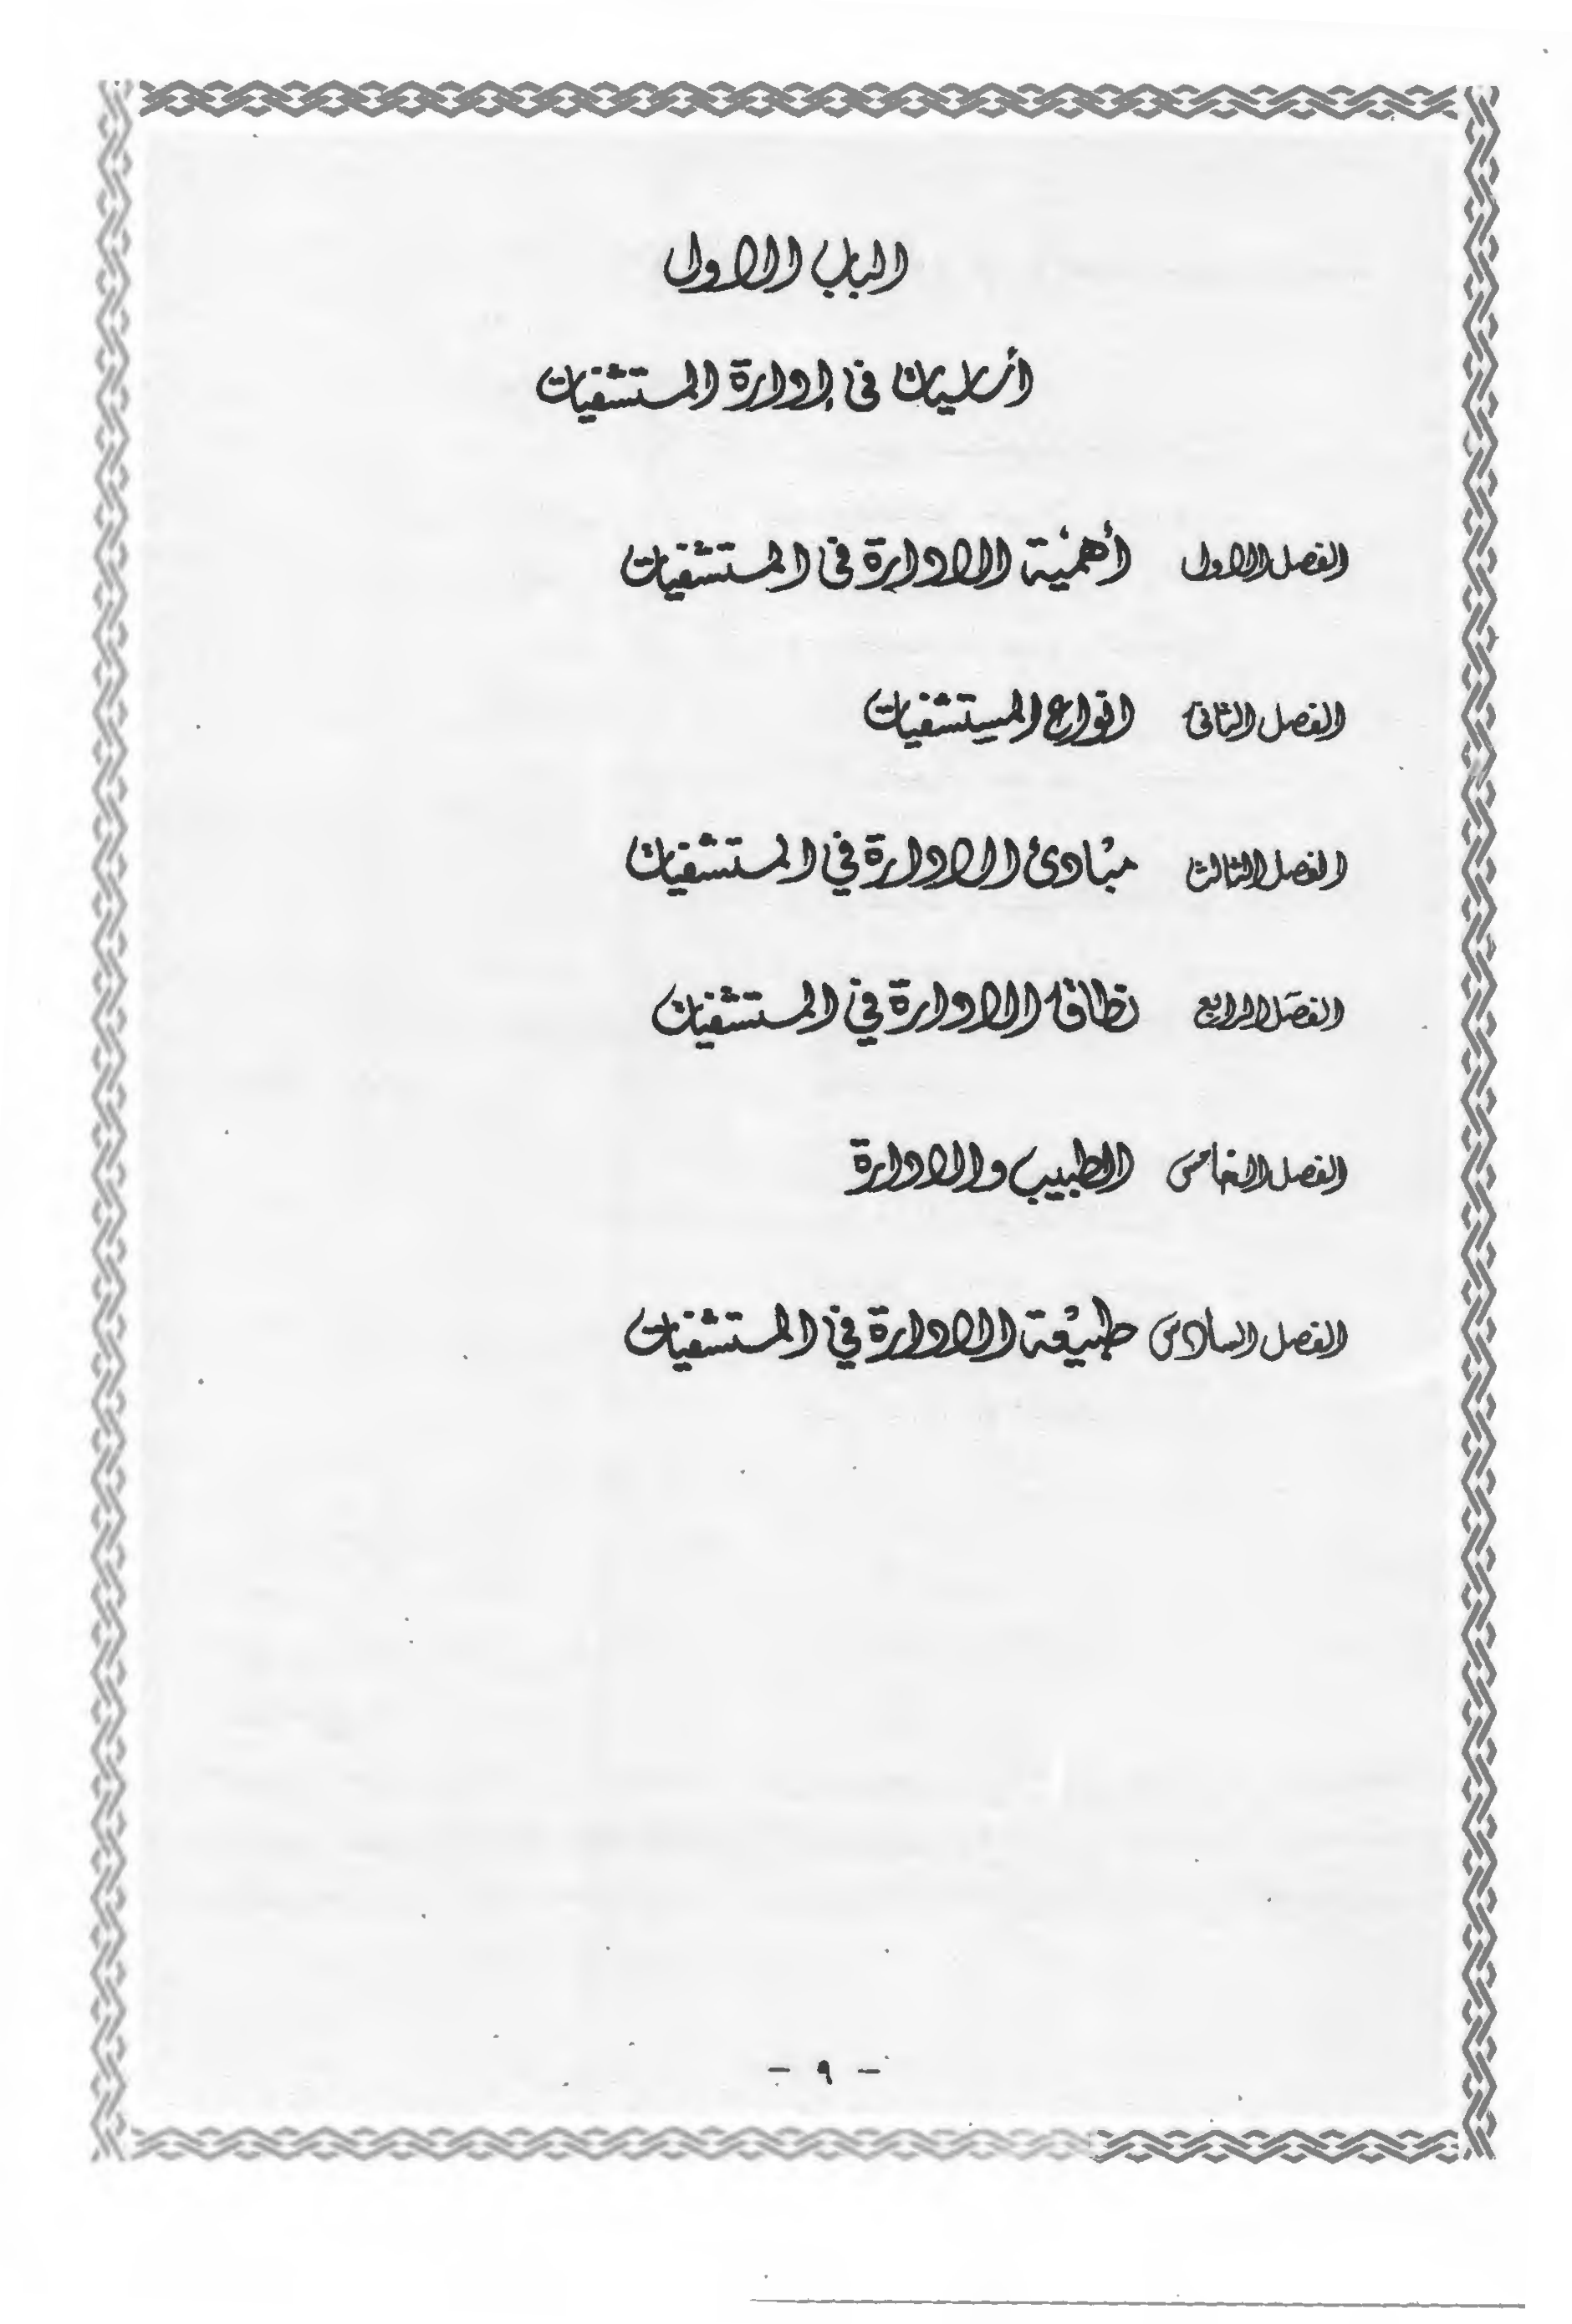 الباب الاول
أساسيات فى إدارة المستشفيات
الفصل الاول أهمية الادارة فى المستشفيات
الفصل الثانى انواع المستشفيات
الفصل الثالث مبادئ الادارة في المستشفيات
الفصل الرابع نطاق الادارة في المستشفيات
الفصل الخامس الطبيب والادارة
الفصل السادس طبيعة الادارة في المستشفيات
- ٩ -